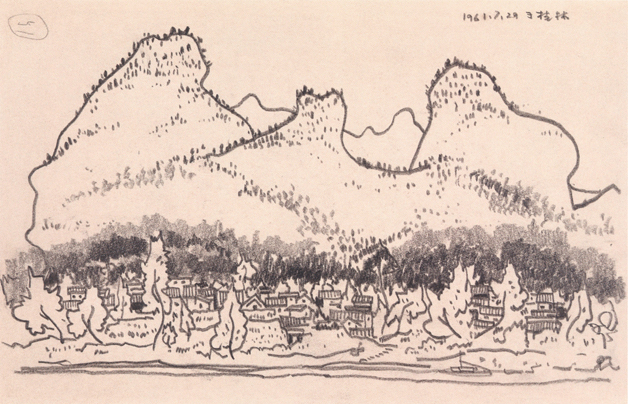 1961.7.29 于桂林